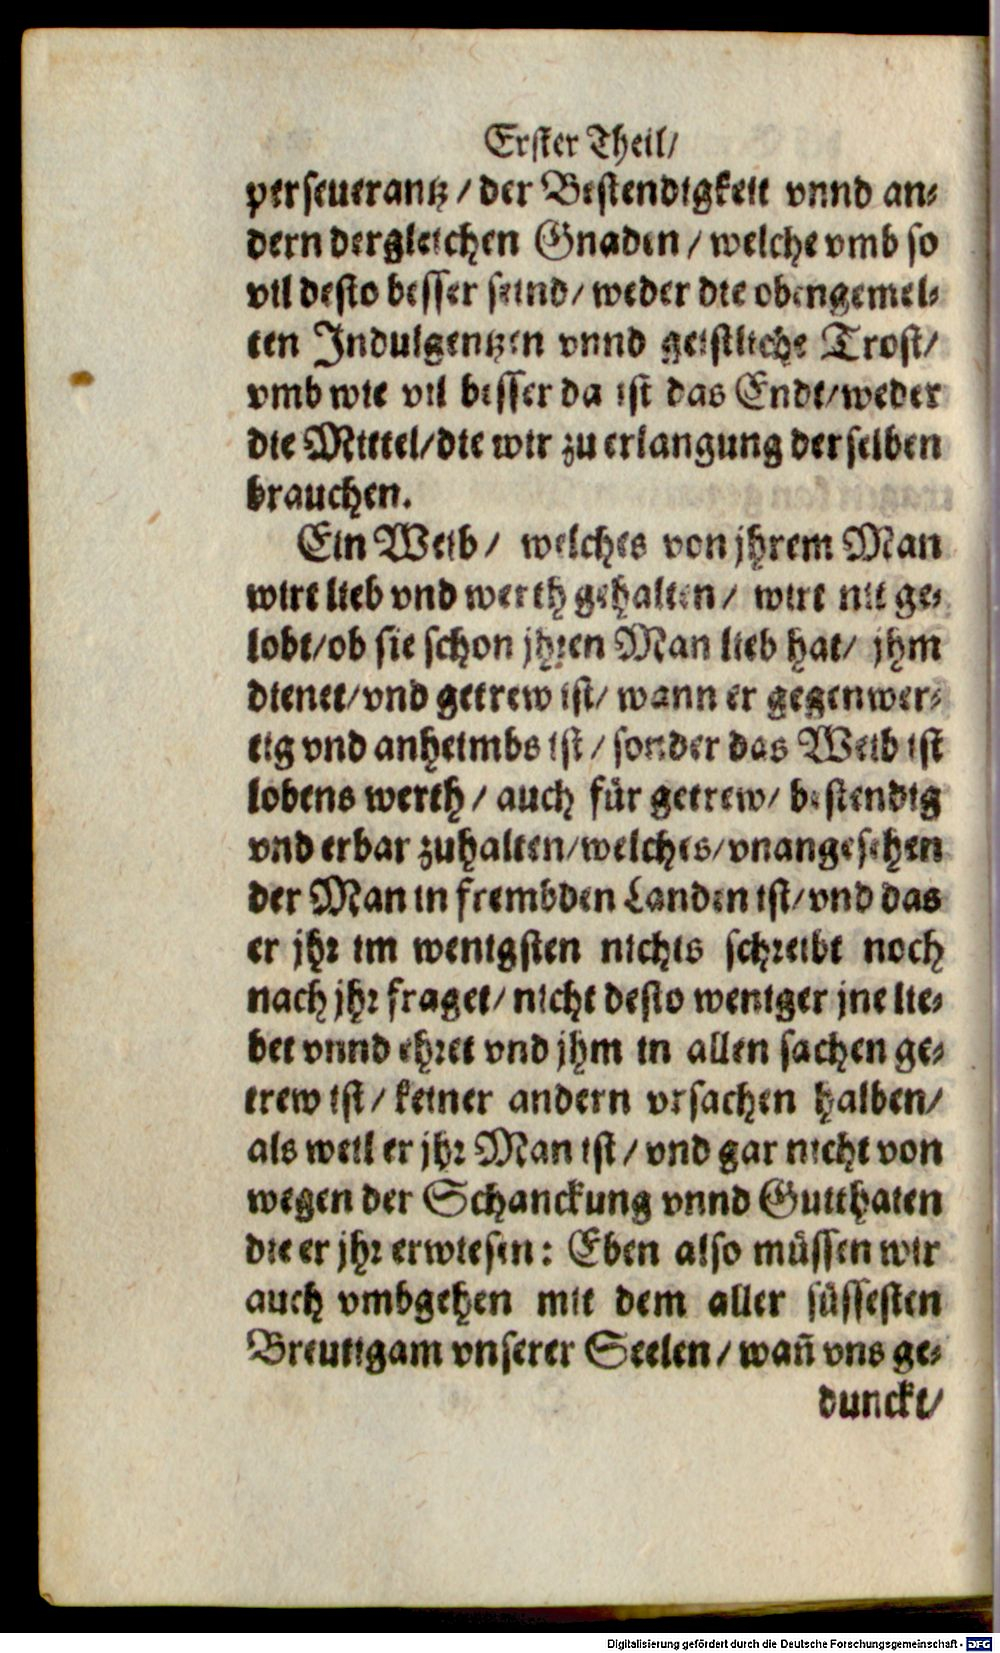 Erster Theil/
perseuerantz / der Bestendigkeit vnnd an⸗
dern dergleichen Gnaden / welche vmb so
vil desto besser seind/ weder die obengemel⸗
ten Indulgentzen vnnd geistliche Trost/
vmb wie vil besser da ist das Endt/weder
die Mittel/die wir zu erlangung derselben
brauchen.
Ein Weib / welches von jhrem Man
wirt lieb vnd werth gehalten / wirt nit ge⸗
lobt/ob sie schon jhren Man lieb hat/ jhm
dienet/vnd getrew ist/ wann er gegenwer⸗
tig vnd anheimbs ist / sonder das Weib ist
lobens werth / auch für getrew/ bestendig
vnd erbar zuhalten/welches/vnangesehen
der Man in frembden Landen ist/vnd das
er jhr im wenigsten nichts schreibt noch
nach jhr fraget/ nicht desto weniger jne lie⸗
bet vnnd ehret vnd jhm in allen sachen ge⸗
trew ist / keiner andern vrsachen halben/
als weil er jhr Man ist / vnd gar nicht von
wegen der Schanckung vnnd Gutthaten
die er jhr erwiesen: Eben also müssen wir
auch vmbgehen mit dem aller süssesten
Breutigam vnserer Seelen / wañ vns ge⸗
dunckt/
Digitalisierung gefördert durch die Deutsche Forschungsgemeinschaft - DFG